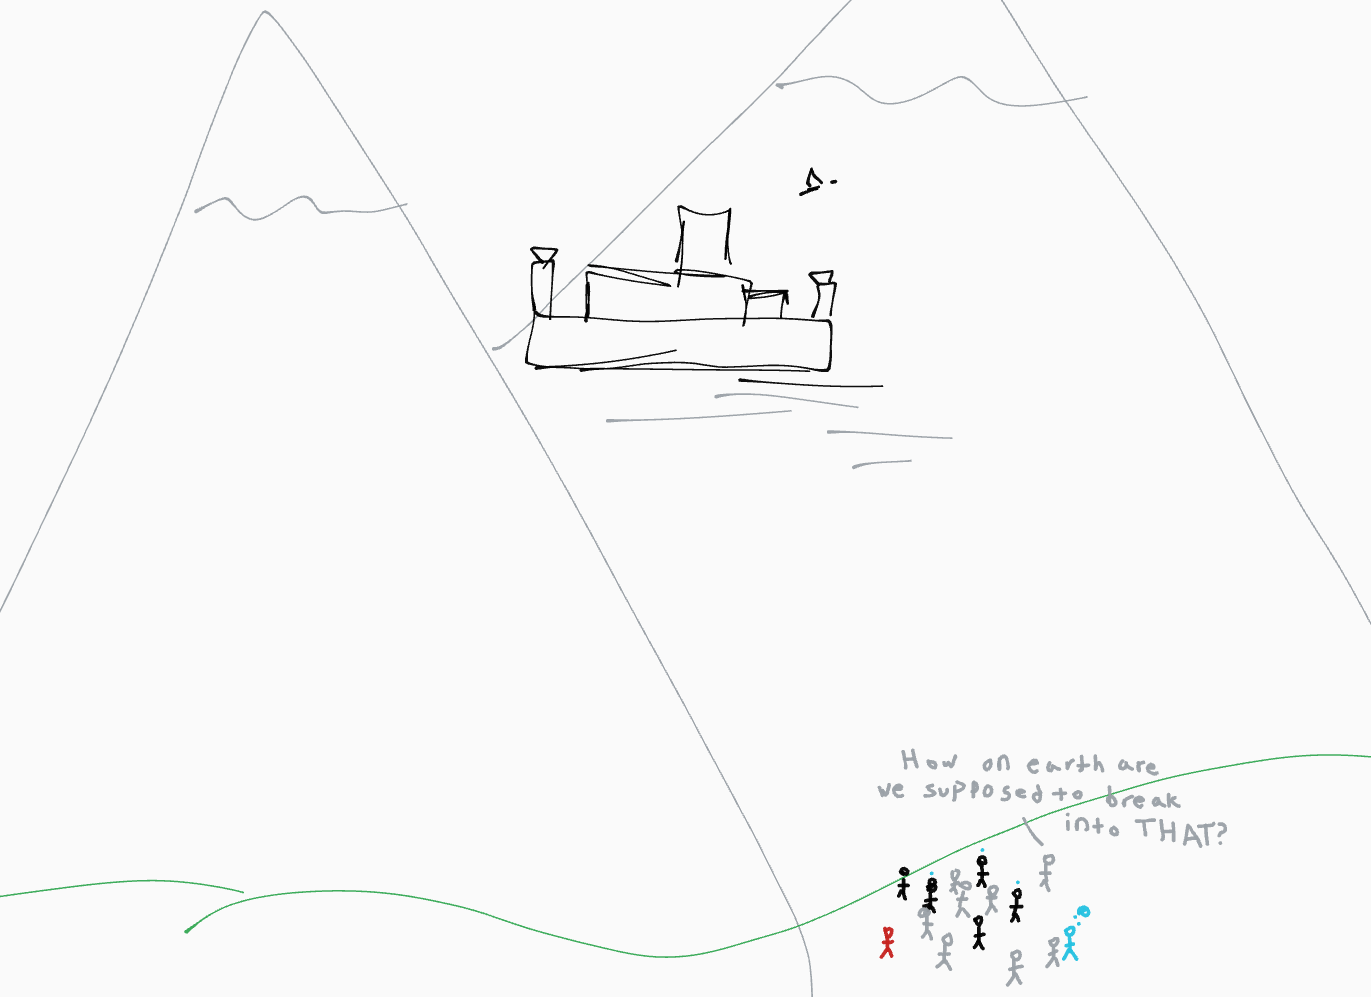 How on earth are
we supposed to break
into THAT?